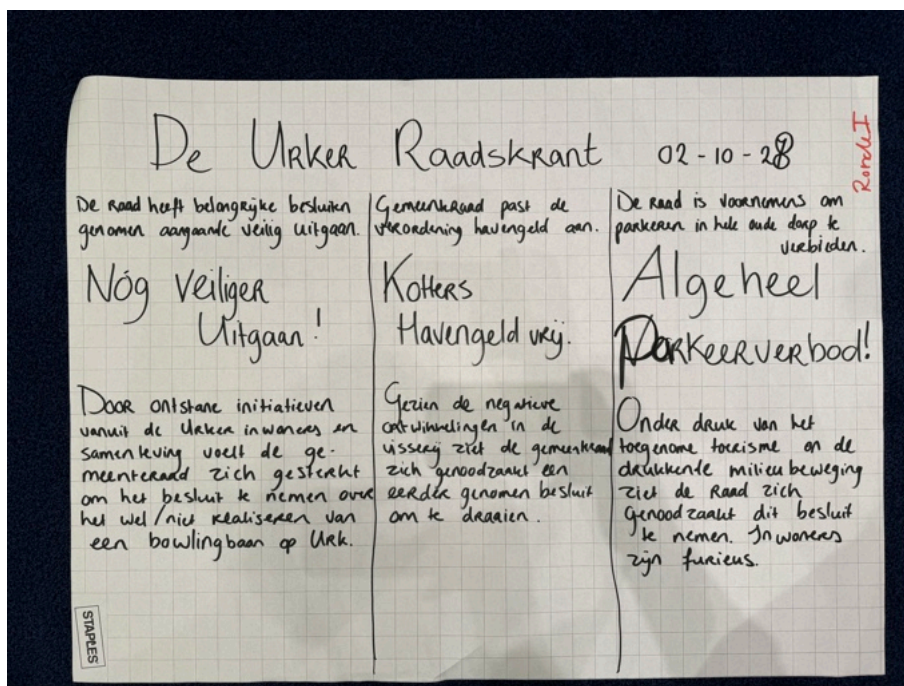 De Urker Raadskrant 02-10-28
Ronde I
De Raad heeft belangrijke besluiten
genomen aangaande veilig uitgaan.
Nóg Veiliger
Uitgaan!
Door ontstane initiatieven
vanuit de Urker inwoners en
samenleving voelt de ge-
meenteraad zich gesterkt
om het besluit te nemen over
het wel/niet realiseren van
een bowlingbaan op Urk.
Gemeenteraad past de
verordening havengeld aan.
Kotters
Havengeld vrij.
Gezien de negatieve
ontwikkelingen in de
visserij ziet de gemeenteraad
zich genoodzaakt een
eerder genomen besluit
om te draaien.
De Raad is voornemens om
parkeren in hele oude dorp te
verbieden.
Algeheel
Parkeerverbod!
Onder druk van het
toegenome toerisme en de
drukkende milieubeweging
ziet de Raad zich
Genoodzaakt dit besluit
te nemen. Inwoners
zijn furieus.
STAPLES